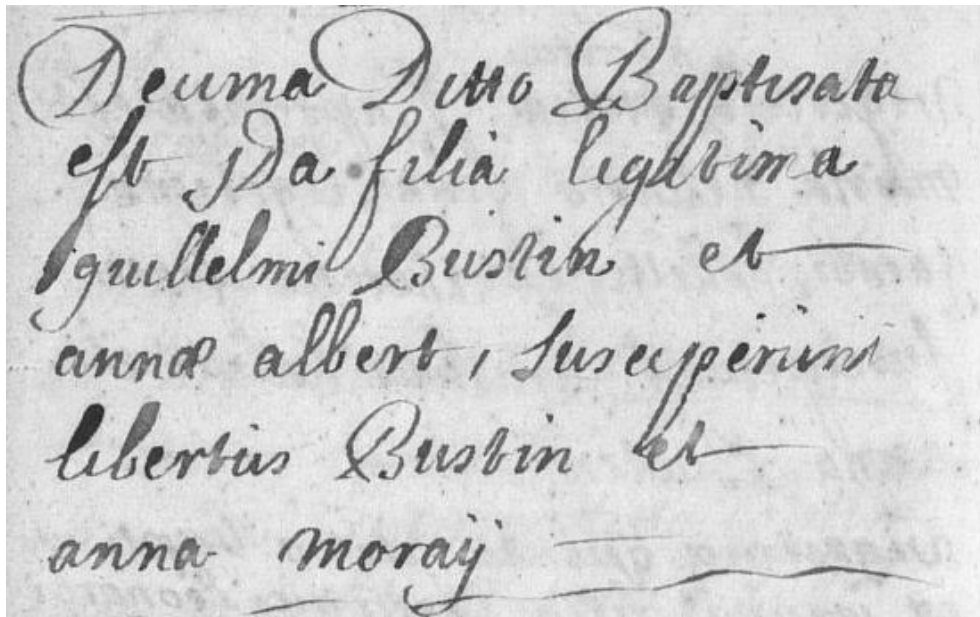 Decima Ditto Baptisata
est Ida filia legitima
guillelmi Bustin et
annæ albert, Susceperunt
libertus Bustin et
anna moraÿ